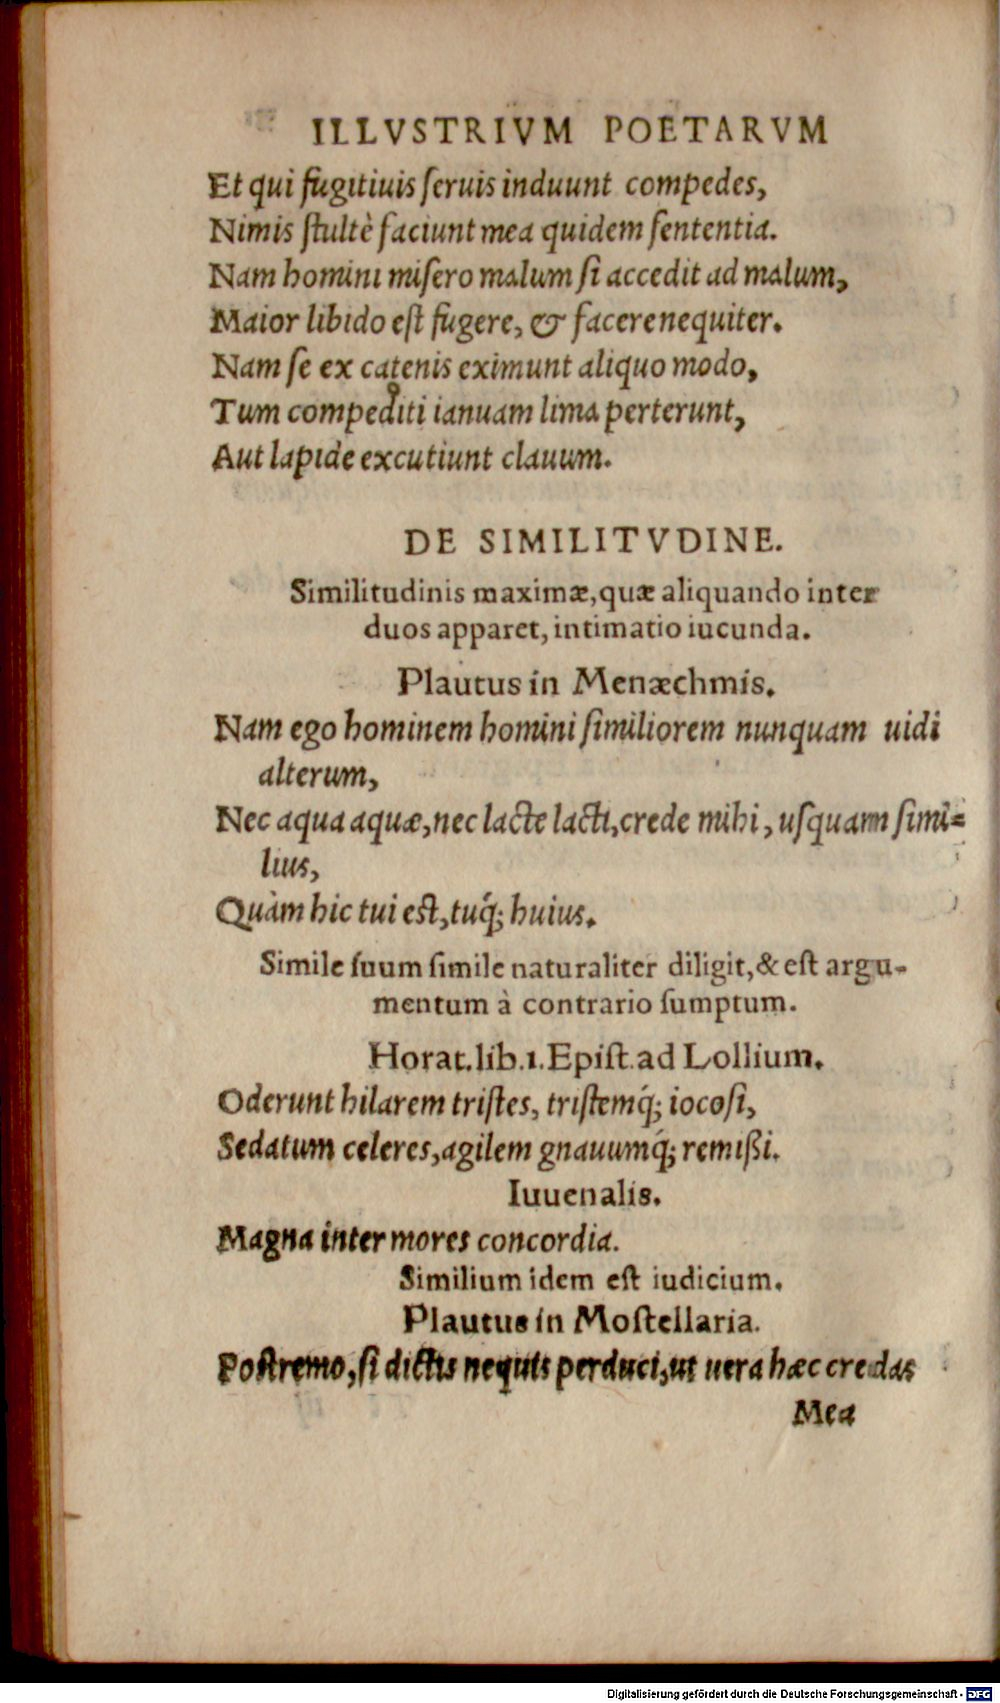 ILLVSTRIVM POETARVM
Et qui fugitiuis ſeruis induunt compedes,
Nimis ſtultè faciunt mea quidem ſententia.
Nam homini miſero malum ſi accedit ad malum,
Maior libido eſt fugere, & facere nequiter.
Nam ſe ex catenis eximunt aliquo modo,
Tum compediti ianuam lima perterunt,
Aut lapide excutiunt clauum.
DE SIMILITVDINE.
Similitudinis maximæ, quæ aliquando inter
duos apparet, intimatio iucunda.
Plautus in Menæchmis.
Nam ego hominem homini ſimiliorem nunquam uidi
alterum,
Nec aqua aquæ, nec lacte lacti, crede mihi, uſquam ſimi-
lius,
Quàm hic tui eſt, tuq́; huius.
Simile ſuum ſimile naturaliter diligit, & eſt argu-
mentum à contrario ſumptum.
Horat. lib. 1. Epiſt. ad Lollium.
Oderunt hilarem triſtes, triſtemq́; iocoſi,
Sedatum celeres, agilem gnauumq́; remißi.
Iuuenalis.
Magna inter mores concordia.
Similium idem eſt iudicium.
Plautus in Moſtellaria.
Poſtremo, ſi dictis nequis perduci, ut uera hæc credas
Mea
Digitalisierung gefördert durch die Deutsche Forschungsgemeinschaft - DFG